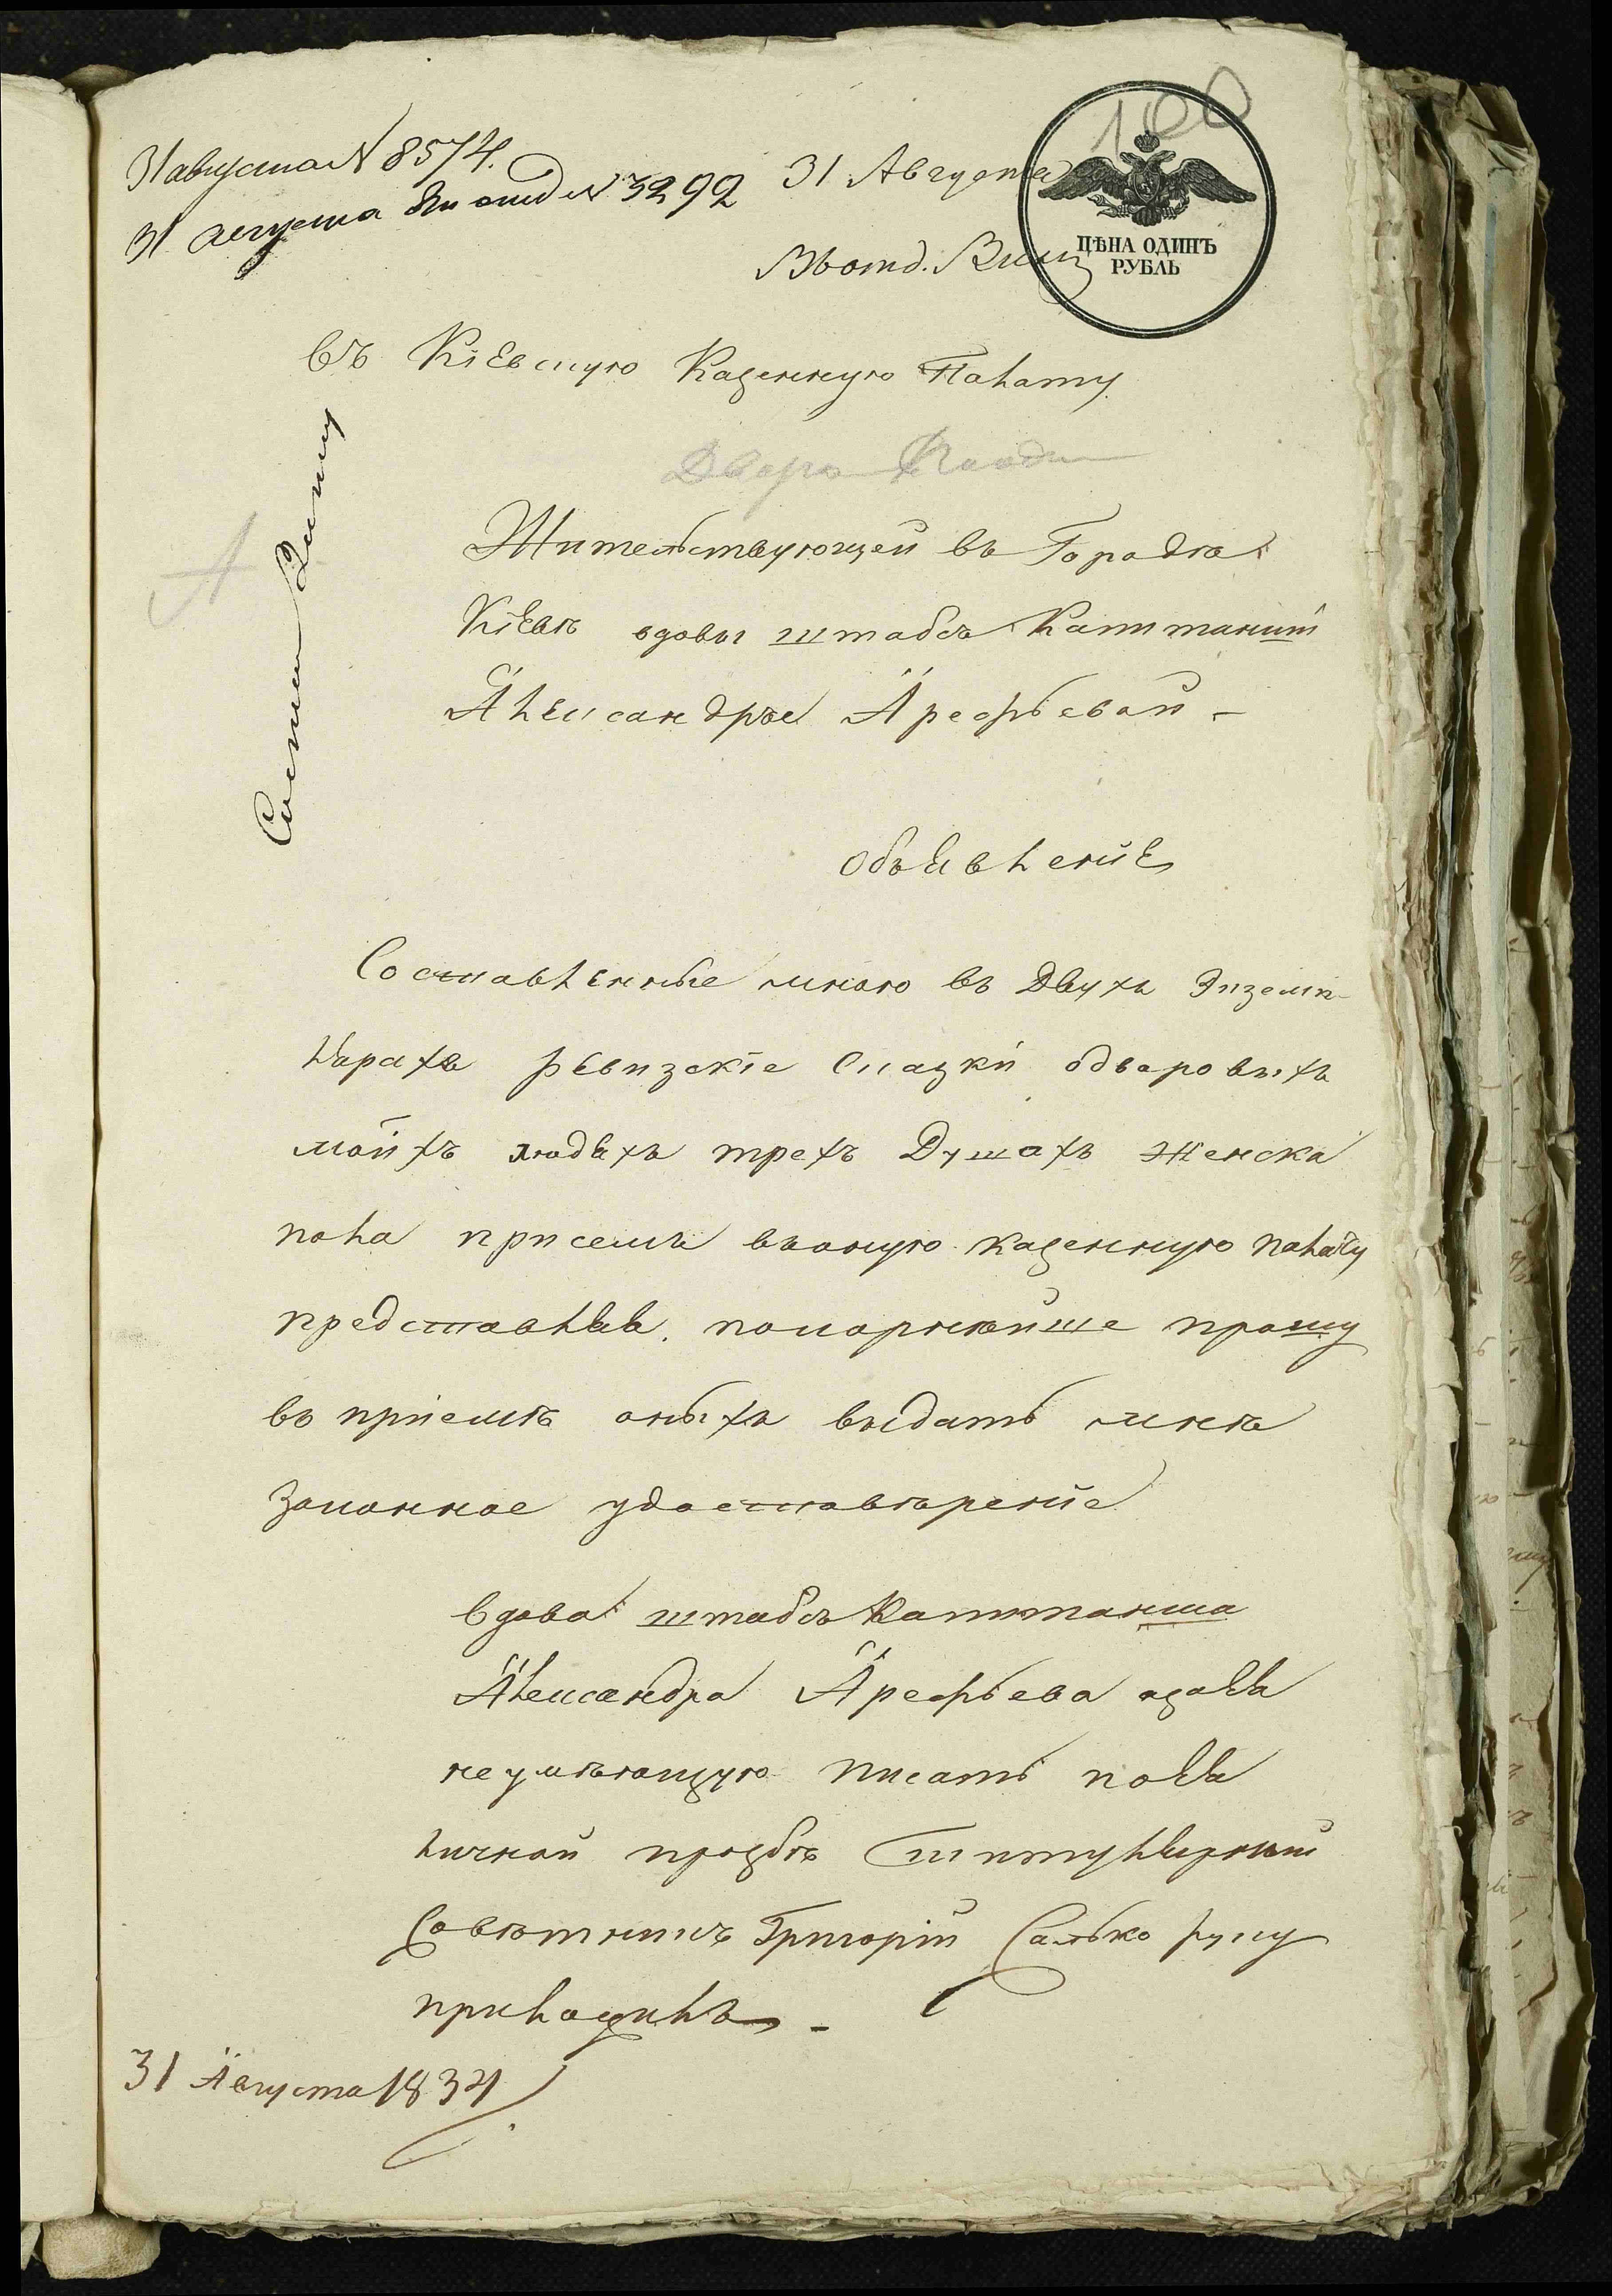 100
31 августа N 8574.
31 августа отд N 3292
31 Августа
ЦѢНА ОДИНЪ
РУБЛЬ
въ Кіевскую Казенную Палату
Дворъ
Жительствующей въ Городѣ
Кіевѣ вдовы штабсъ Капитанши
Александры Арефьевой –
Объявленіе
Составленные мною въ Двухъ Экземп-
лярахъ Ревизскіе Сказки одворовыхъ
моихъ людяхъ трехъ Душахъ женска
пола присемъ въоную казенную палату
представляя, покорнѣйше прошу
въ пріемѣ оныхъ выдать мнѣ
законное удостовѣреніе
вдова штабсъ Капитанша
Александра Арефьева азаея
неумѣющую писать поея
личной прозбѣ Титулярный
Совѣтникъ Григорій Салько руку
приложилъ –
31 Августа 1834